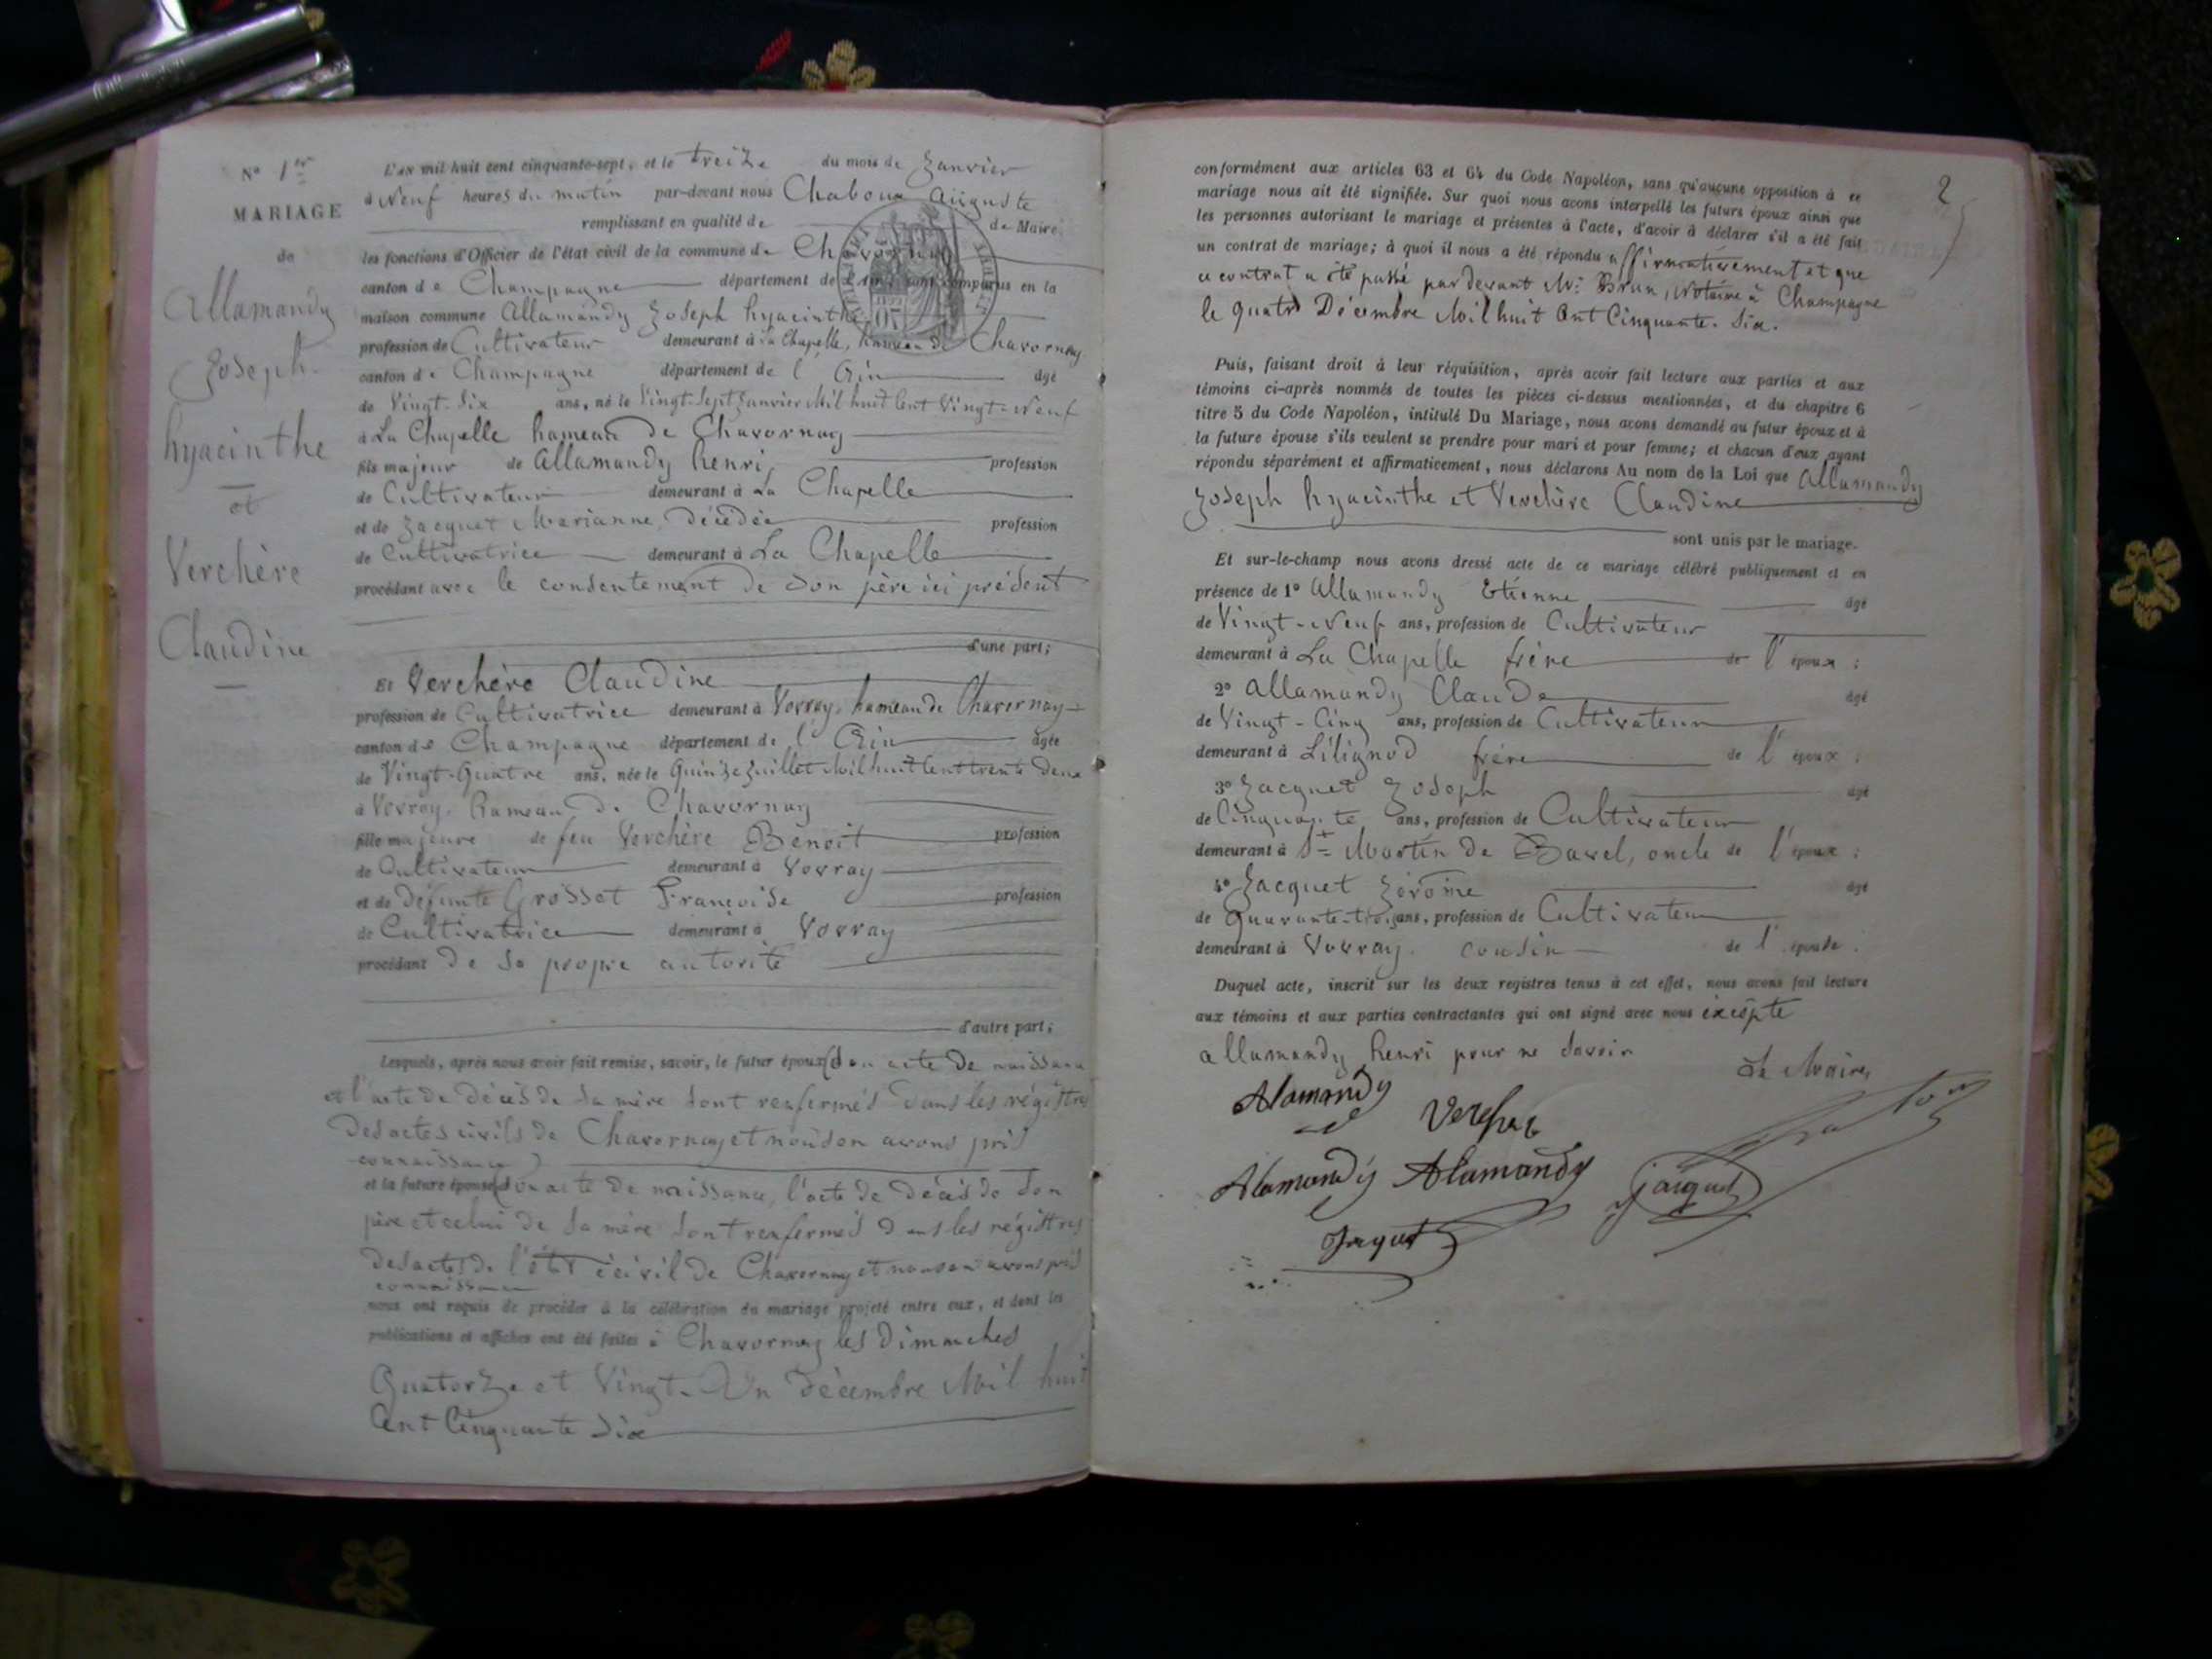 N° 1er
MARIAGE
de
Allamandy
Joseph
hyacinthe
et
Verchère
Claudine
L'an mil huit cent cinquante-sept, et le treize du mois de Janvier
à Neuf heures du matin par-devant nous Chaboux Auguste
remplissant en qualité de de Maire
les fonctions d'Officier de l'état civil de la commune de Chavornay
canton de Champagne département de l'Ain sont comparus en la
maison commune Allamandy Joseph hyacinthe
profession de Cultivateur demeurant à La Chapelle, hameau de Chavornay
canton de Champagne département de l'Ain âgé
de Vingt-Six ans, né le Vingt-Sept Janvier Mil huit Cent Vingt-Neuf
à La Chapelle hameau de Chavornay
fils majeur de Allamandy henri, profession
de Cultivateur demeurant à La Chapelle
et de Jacquet Marianne, Décédée profession
de Cultivatrice demeurant à La Chapelle
procédant avec le consentement de Son père ici présent
d'une part;
Et Verchère Claudine
profession de Cultivatrice demeurant à Vovray, hameau de Chavornay
canton de Champagne département de l'Ain âgée
de Vingt-Quatre ans, née le Quinze Juillet Mil huit Cent trente Deux
à Vovray, hameau de Chavornay
fille majeure de feu Verchère Benoit profession
de Cultivateur demeurant à Vovray
et de Défunte Grosset Françoise profession
de Cultivatrice demeurant à Vovray
procédant De Sa propre autorité
d'autre part;
Lesquels, après nous avoir fait remise, savoir, le futur époux (Son acte De naissance
et l'acte De Décès De Sa mère Sont renfermés Dans les régistres
Des actes civils de Chavornay et nous en avons pris
connaissance)
et la future épouse (Son acte De naissance, l'acte De Décès De Son
père et celui De Sa mère Sont renfermés Dans les régistres
Des actes De l'état civil De Chavornay et nous en avons pris
connaissance
nous ont requis de procéder à la célébration du mariage projeté entre eux, et dont les
publications et affiches ont été faites à Chavornay les Dimanches
Quatorze et Vingt-Un Décembre Mil huit
Cent Cinquante Six
2
conformément aux articles 63 et 64 du Code Napoléon, sans qu'aucune opposition à ce
mariage nous ait été signifiée. Sur quoi nous avons interpellé les futurs époux ainsi que
les personnes autorisant le mariage et présentes à l'acte, d'avoir à déclarer s'il a été fait
un contrat de mariage; à quoi il nous a été répondu affirmativement et que
ce contrat a été passé par devant Me Brun, Notaire à Champagne
le quatre Décembre Mil huit Cent Cinquante-Six.
Puis, faisant droit à leur réquisition, après avoir fait lecture aux parties et aux
témoins ci-après nommés de toutes les pièces ci-dessus mentionnées, et du chapitre 6
titre 5 du Code Napoléon, intitulé Du Mariage, nous avons demandé au futur époux et à
la future épouse s'ils veulent se prendre pour mari et pour femme; et chacun d'eux ayant
répondu séparément et affirmativement, nous déclarons Au nom de la Loi que Allamandy
Joseph hyacinthe et Verchère Claudine
sont unis par le mariage.
Et sur-le-champ nous avons dressé acte de ce mariage célébré publiquement et en
présence de 1° Allamandy Etienne âgé
de Vingt-Neuf ans, profession de Cultivateur
demeurant à La Chapelle frère de l'époux;
2° Allamandy Claude âgé
de Vingt-Cinq ans, profession de Cultivateur
demeurant à Lilignod frère de l'époux;
3° Jacquet Joseph âgé
de Cinquante ans, profession de Cultivateur
demeurant à St Martin De Bavel, oncle de l'époux;
4° Jacquet Jérôme âgé
de Quarante-trois ans, profession de Cultivateur
demeurant à Vovray. cousin de l'épouse.
Duquel acte, inscrit sur les deux registres tenus à cet effet, nous avons fait lecture
aux témoins et aux parties contractantes qui ont signé avec nous éxcépté
allamandy henri pour ne Savoir
Le Maire,
Alamandy
Alamandy Alamandy
jacquet
Jaquet